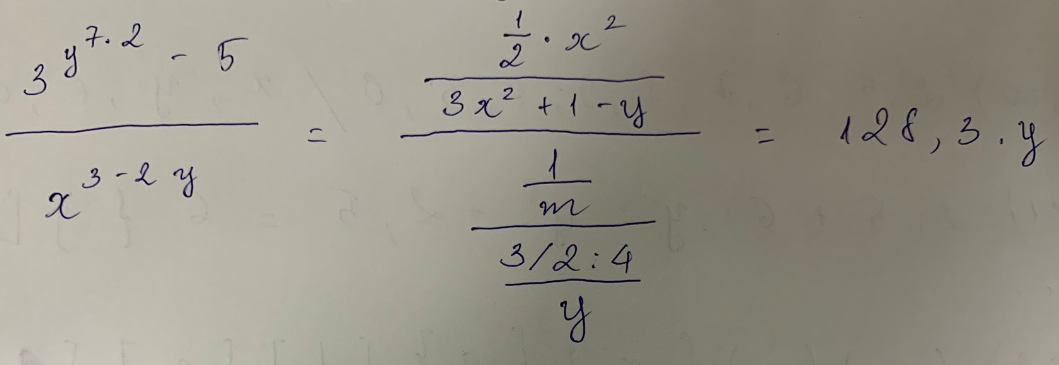 \frac{3^{y^{7 \cdot 2}} - 5}{x^{3-2y}} = \frac{\frac{\frac{1}{2} \cdot x^2}{3x^2 + 1 - y}}{\frac{\frac{1}{m}}{\frac{3/2 : 4}{y}}} = 128,3 \cdot y